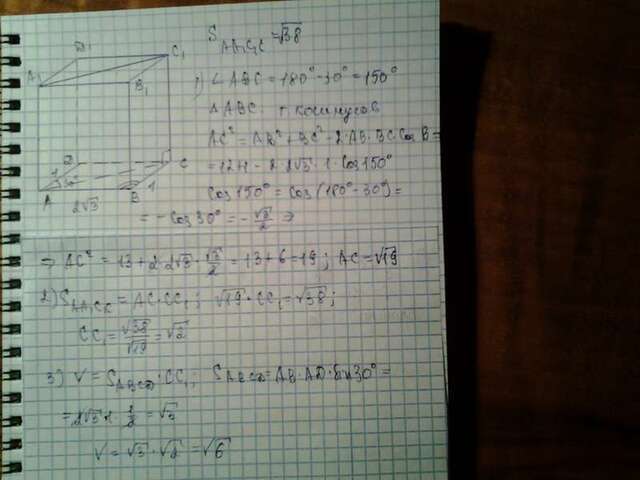 S_{AA₁C₁C} = √38
D₁
C₁
A₁
B₁
1) ∠ABC = 180° - 30° = 150°
△ABC. т. косинусов
AC² = AB² + BC² - 2·AB·BC·Cos B =
= 12+1 - 2·2√3·1·Cos150°
Cos150° = Cos(180° - 30°) =
= -Cos30° = -√3/2 ⇒
D
C
1
30°
A
2√3
B
1
⇒ AC² = 13 + 2·2√3·√3/2 = 13 + 6 = 19; AC = √19
2) S_{AA₁C₁C} = AC·CC₁; √19·CC₁ = √38;
CC₁ = √38/√19 = √2
3) V = S_{ABCD}·CC₁; S_{ABCD} = AB·AD·Sin30° =
= 2√3·1·1/2 = √3
V = √3·√2 = √6